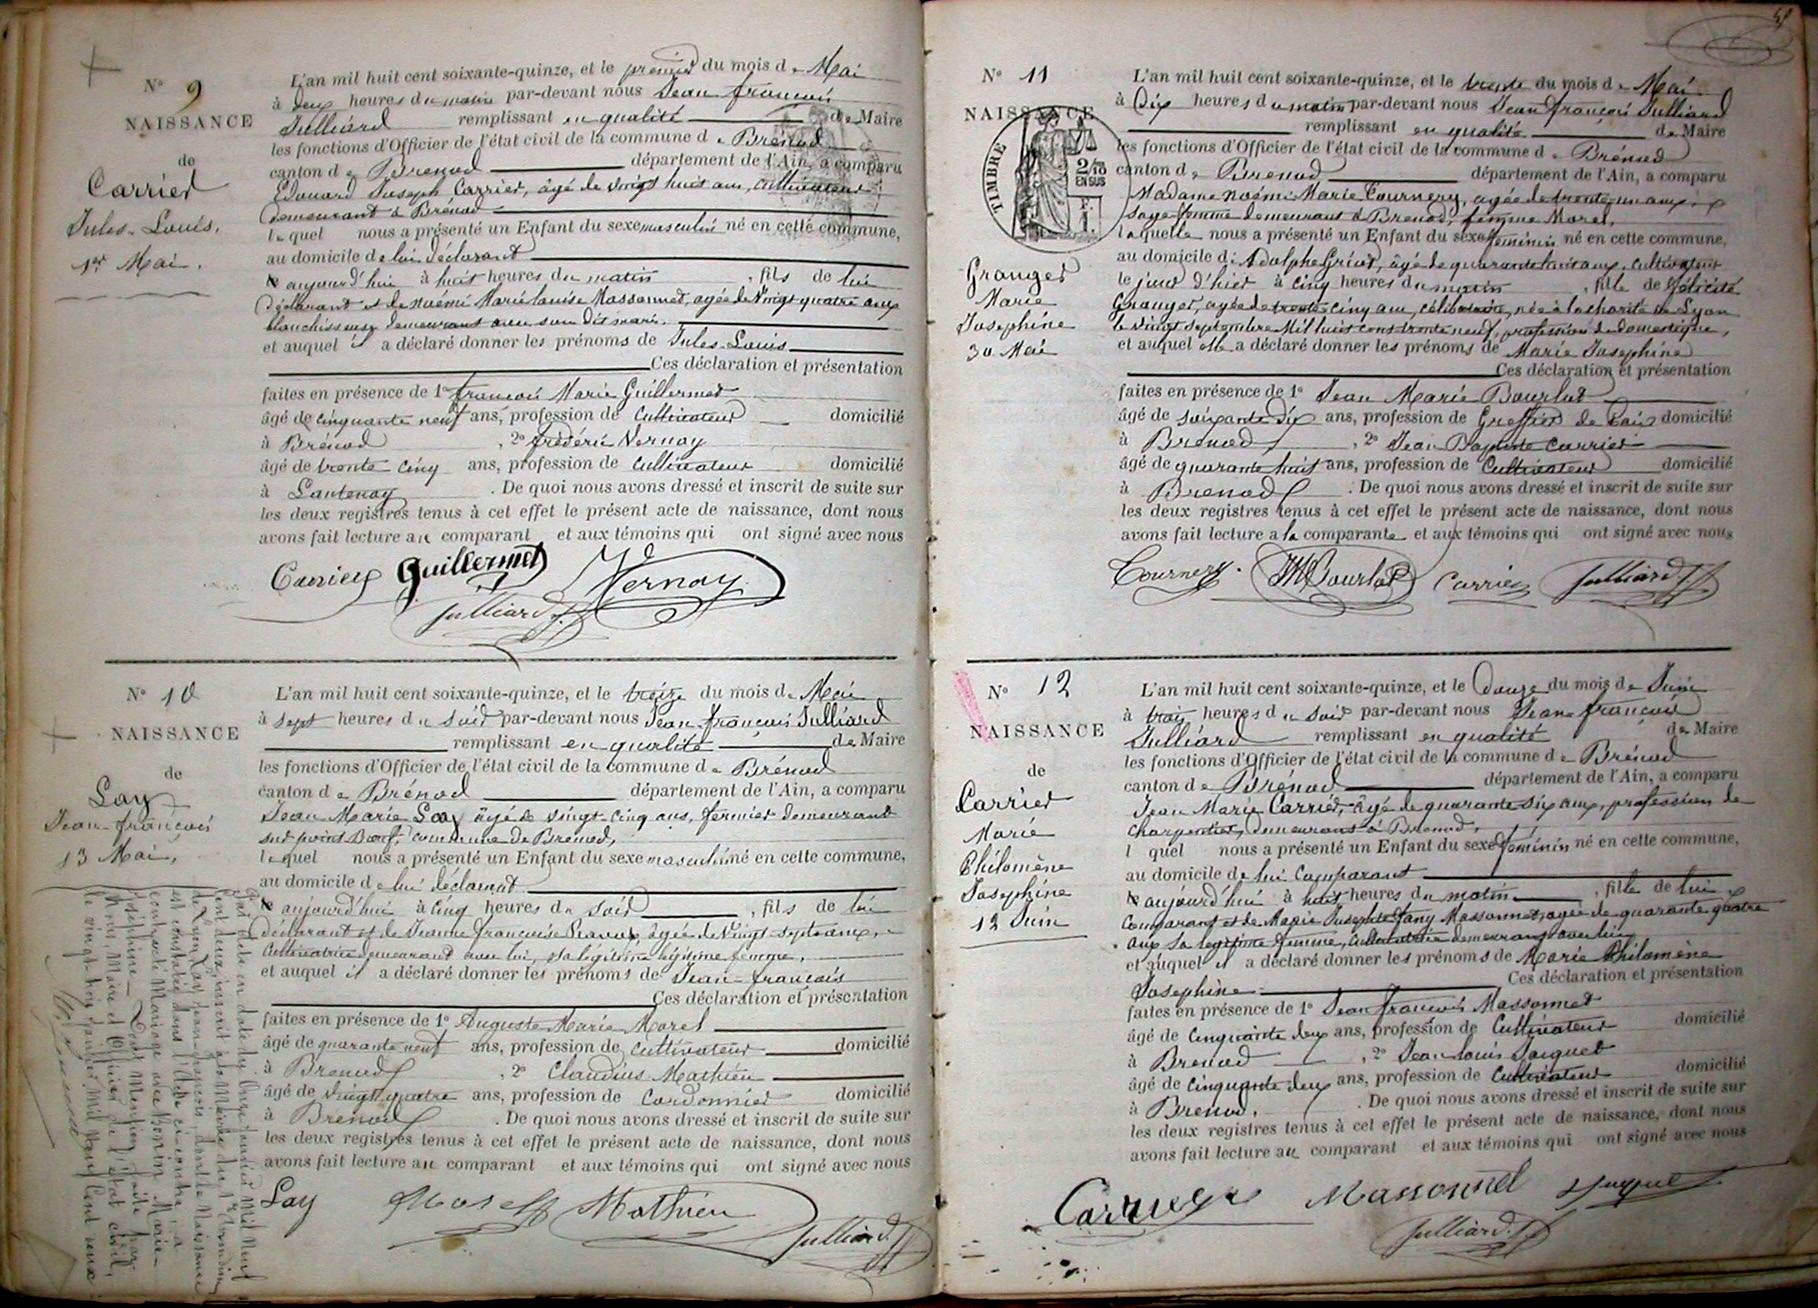 N° 9
NAISSANCE
de
Carrier
Jules-Louis,
1er Mai.
L'an mil huit cent soixante-quinze, et le premier du mois de Mai
à deux heures du matin par-devant nous Jean françois
Julliard remplissant en qualité de Maire
les fonctions d'Officier de l'état civil de la commune de Brénod
canton de Brenod département de l'Ain, a comparu
Edouard Joseph Carrier, âgé de vingt huit ans, cultivateur
demeurant à Brénod
lequel nous a présenté un Enfant du sexe masculin né en cette commune,
au domicile de lui déclarant
aujourd'hui à huit heures du matin, fils de lui
déclarant et de Noémi Marie Louise Massonnet, agée de Vingt quatre ans
blanchisseuse demeurant avec son dit mari.
et auquel il a déclaré donner les prénoms de Jules-Louis
Ces déclaration et présentation
faites en présence de 1° françois Marie Guillermet
âgé de cinquante neuf ans, profession de Cultivateur domicilié
à Brénod, 2° frédéric Vernay
âgé de trente cinq ans, profession de Cultivateur domicilié
à Lantenay. De quoi nous avons dressé et inscrit de suite sur
les deux registres tenus à cet effet le présent acte de naissance, dont nous
avons fait lecture au comparant et aux témoins qui ont signé avec nous
Carrier Guillermet Vernay
Julliard
N° 10
NAISSANCE
de
Lay
Jean-françois
13 Mai,
L'an mil huit cent soixante-quinze, et le treize du mois de Mai
à sept heures du soir par-devant nous Jean-françois Julliard
remplissant en qualité de Maire
les fonctions d'Officier de l'état civil de la commune de Brénod
canton de Brénod département de l'Ain, a comparu
Jean Marie Lay âgé de vingt-cinq ans, fermier demeurant
commune de Brenod,
lequel nous a présenté un Enfant du sexe masculin né en cette commune,
au domicile de lui déclarant
aujourd'hui à cinq heures du soir, fils de lui
déclarant et de Jeanne françoise agée de Vingt-sept ans,
Cultivatrice demeurant avec lui, sa légitime légitime femme.
et auquel il a déclaré donner les prénoms de Jean-françois
Ces déclaration et présentation
faites en présence de 1° Auguste Marie Morel
âgé de quarante neuf ans, profession de cultivateur domicilié
à Brenod, 2° Claudius Mathieu
âgé de vingt quatre ans, profession de Cordonnier domicilié
à Brenod. De quoi nous avons dressé et inscrit de suite sur
les deux registres tenus à cet effet le présent acte de naissance, dont nous
avons fait lecture au comparant et aux témoins qui ont signé avec nous
Lay Morel Mathieu
Julliard
N° 11
NAISSANCE
TIMBRE
2/10
EN SUS
Granger
Marie
Josephine
30 Mai
L'an mil huit cent soixante-quinze, et le trente du mois de Mai
à Dix heures du matin par-devant nous Jean françois Julliard
remplissant en qualité de Maire
les fonctions d'Officier de l'état civil de la commune de Brénod
canton de Brenod département de l'Ain, a comparu
Madame Noémi Marie Tournery, agée de trente un ans,
Sage-femme demeurant à Brenod, femme Morel,
laquelle nous a présenté un Enfant du sexe féminin né en cette commune,
au domicile d'Adolphe âgé de quarante huit ans, cultivateur
le jour d'hier à cinq heures du matin, fille de félicité
Granger, agée de trente cinq ans, célibataire, née à la charité de Lyon
le vingt septembre Mil huit cent trente neuf, profession de domestique,
et auquel elle a déclaré donner les prénoms de Marie Josephine
Ces déclaration et présentation
faites en présence de 1° Jean Marie Bourlot
âgé de soixante dix ans, profession de Greffier de Paix domicilié
à Brenod, 2° Jean Baptiste Carrier
âgé de quarante huit ans, profession de Cultivateur domicilié
à Brenod. De quoi nous avons dressé et inscrit de suite sur
les deux registres tenus à cet effet le présent acte de naissance, dont nous
avons fait lecture a la comparante et aux témoins qui ont signé avec nous
Tournery. JM Bourlot Carrier Julliard
N° 12
NAISSANCE
de
Carrier
Marie
Philomène
Josephine
12 Juin
L'an mil huit cent soixante-quinze, et le Douze du mois de Juin
à trois heures du soir par-devant nous Jean françois
Julliard remplissant en qualité de Maire
les fonctions d'Officier de l'état civil de la commune de Brénod
canton de Brénod département de l'Ain, a comparu
Jean Marie Carrier, âgé de quarante six ans, profession de
charpentier, demeurant à Brenod,
l quel nous a présenté un Enfant du sexe féminin né en cette commune,
au domicile de lui Comparant
aujourd'hui à huit heures du matin, fille de lui
Comparant et de Marie Josephte fany Massonnet, agée de quarante quatre
ans sa legitime femme, cultivatrice demeurant avec lui
et auquel il a déclaré donner les prénoms de Marie Philomène
Josephine Ces déclaration et présentation
faites en présence de 1° Jean françois Massonnet
âgé de Cinquante deux ans, profession de Cultivateur domicilié
à Brenod, 2° Jean Louis
âgé de Cinquante deux ans, profession de Cultivateur domicilié
à Brenod. De quoi nous avons dressé et inscrit de suite sur
les deux registres tenus à cet effet le présent acte de naissance, dont nous
avons fait lecture au comparant et aux témoins qui ont signé avec nous
Carrier Massonnet
Julliard